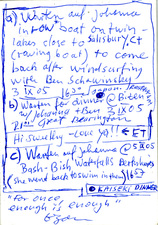 a) Waiten auf Johanna
in row boat on twin-
lakes close to Salisbury, Ct
(rowing boat) to come
back after windsurfing
with Ben Schawinsky
3 IX 05
b) Waiten for dinner
w/ Johanna + Ben 3 IX 05
Great Barrington
Hi Swelley - Love ya! ← ET
c) Waiten auf Johanna @ 5 IX 05
Bash-Bish Waterfalls Berkshires
(she went back to swim in
KAISEKI DINNER
"For once,
enough is enough"